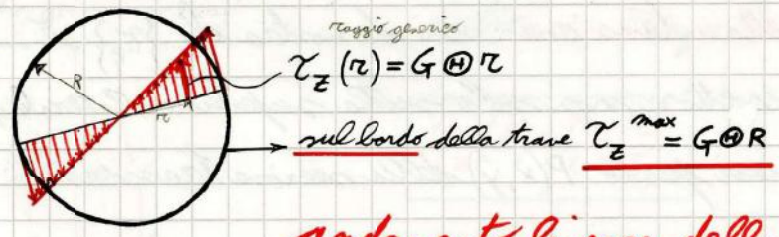 raggio generico
R
τ_z (r) = G Θ r
r
sul bordo della trave τ_z^max = G Θ R